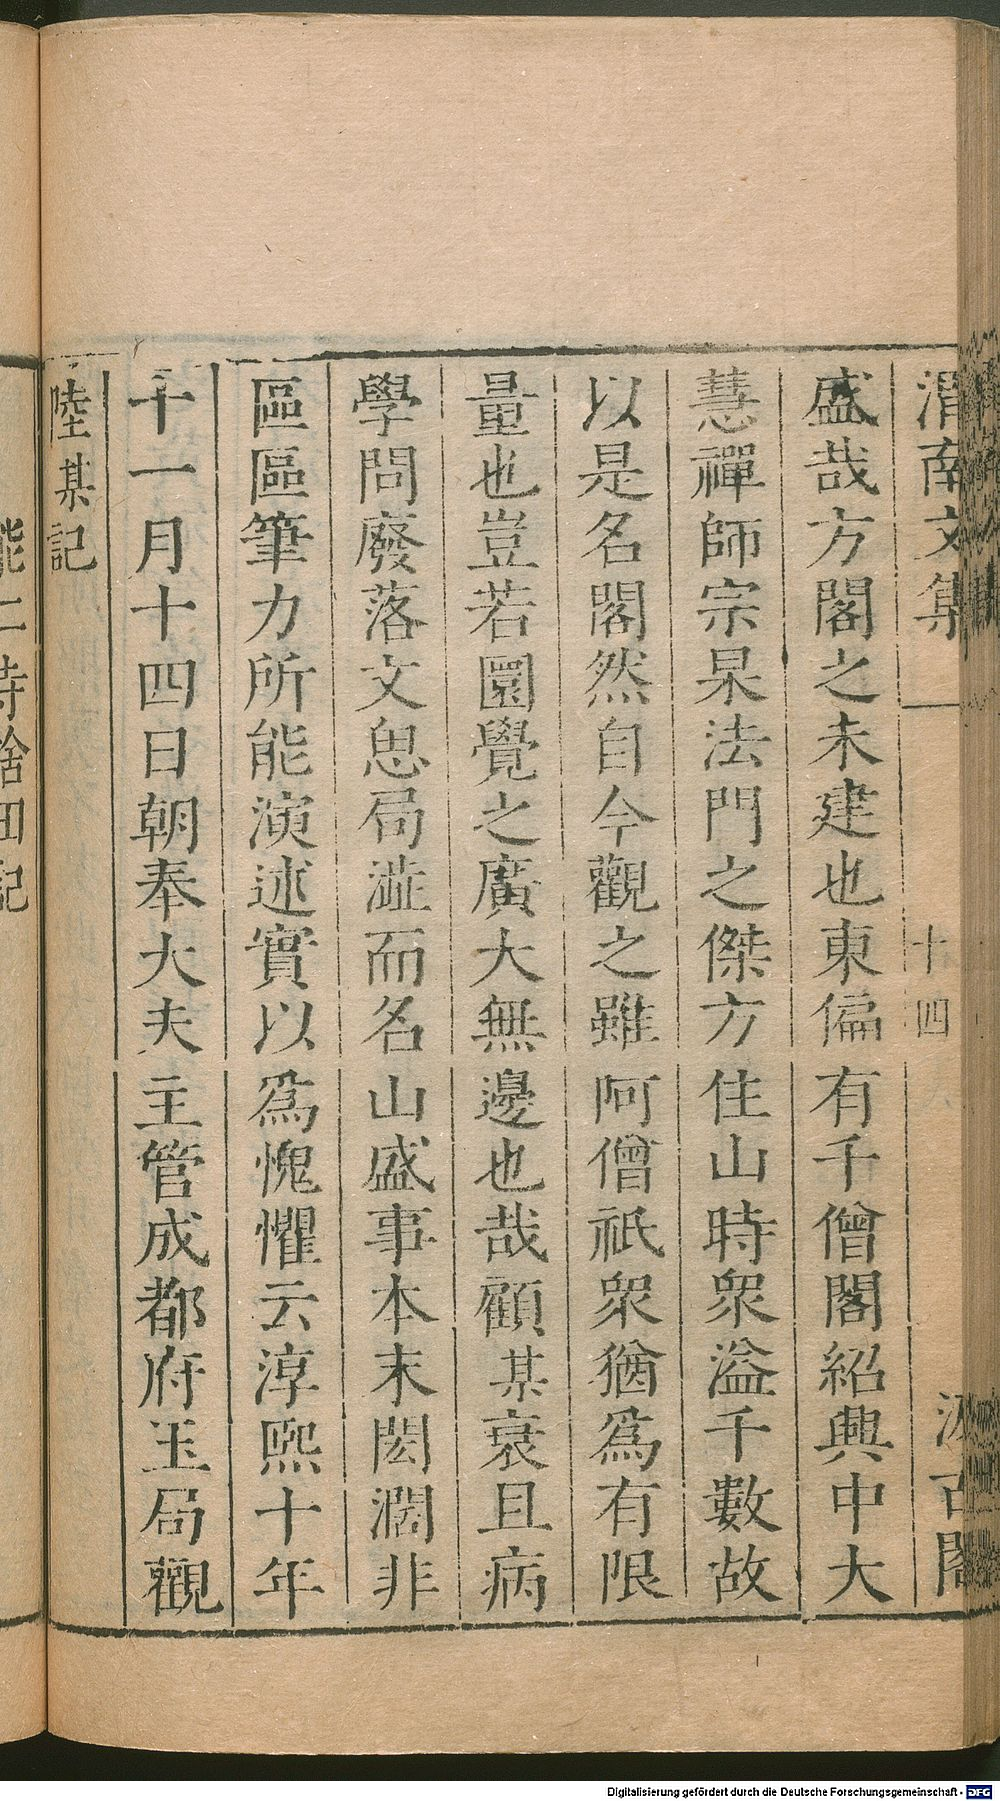 渭南文集 十四 汲古閣
盛哉方閣之未建也東偏有千僧閣紹興中大
慧禪師宗杲法門之傑方住山時衆溢千數故
以是名閣然自今觀之雖阿僧祇衆猶爲有限
量也豈若圓覺之廣大無邊也哉顧某衰且病
學問廢落文思局澁而名山盛事本末閎濶非
區區筆力所能演述實以爲愧懼云淳熙十年
十一月十四日朝奉大夫主管成都府玉局觀
陸某記
能仁寺捨田記
Digitalisierung gefördert durch die Deutsche Forschungsgemeinschaft - DFG